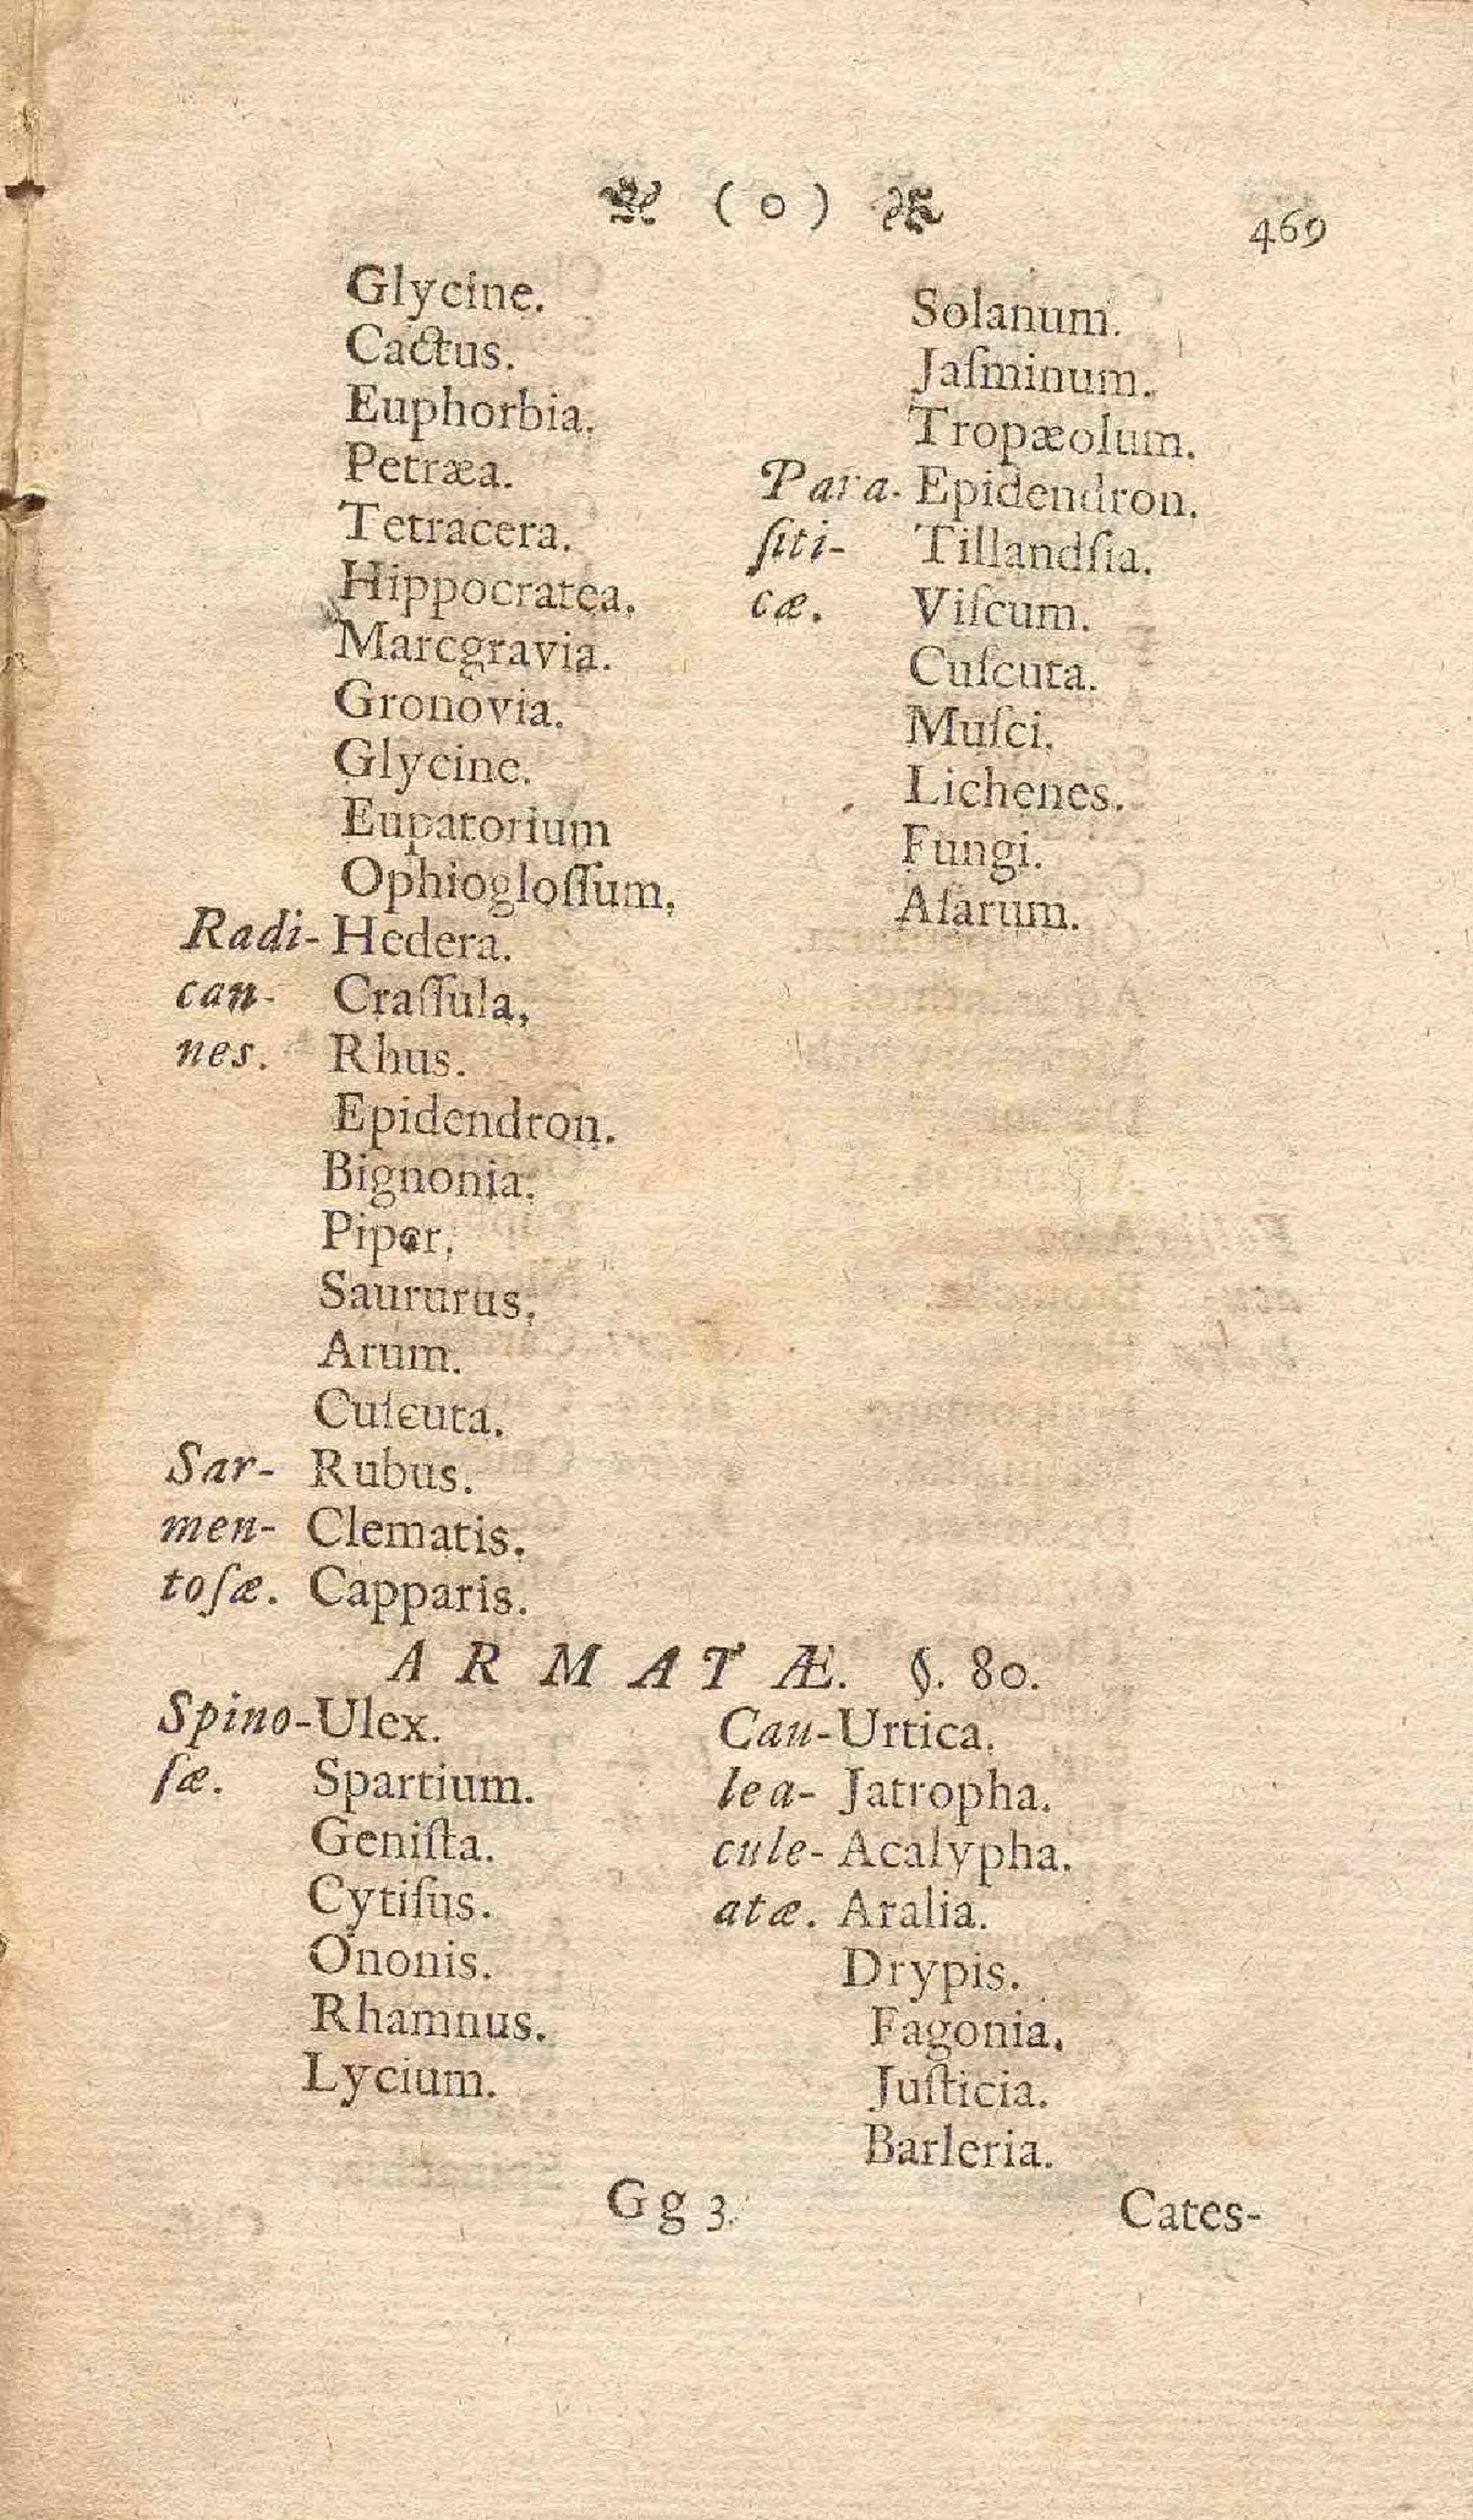 ( o )
469
Glycine.
Cactus.
Euphorbia.
Petræa.
Tetracera.
Hippocratea.
Marcgravia.
Gronovia.
Glycine.
Eupatorium
Ophiogloſſum.
Radi- Hedera.
can- Craſſula,
nes. Rhus.
Epidendron.
Bignonia.
Piper.
Saururus.
Arum.
Cuſcuta.
Sar- Rubus.
men- Clematis.
toſæ. Capparis.
Solanum.
Jaſminum.
Tropæolum.
Para- Epidendron.
ſiti- Tillandſia.
cæ. Viſcum.
Cuſcuta.
Muſci.
Lichenes.
Fungi.
Aſarum.
ARMATÆ. §. 80.
Spino- Ulex.
ſæ. Spartium.
Geniſta.
Cytiſus.
Ononis.
Rhamnus.
Lycium.
Cau- Urtica.
lea- Jatropha.
cule- Acalypha.
atæ. Aralia.
Drypis.
Fagonia.
Juſticia.
Barleria.
Gg 3.
Cates-